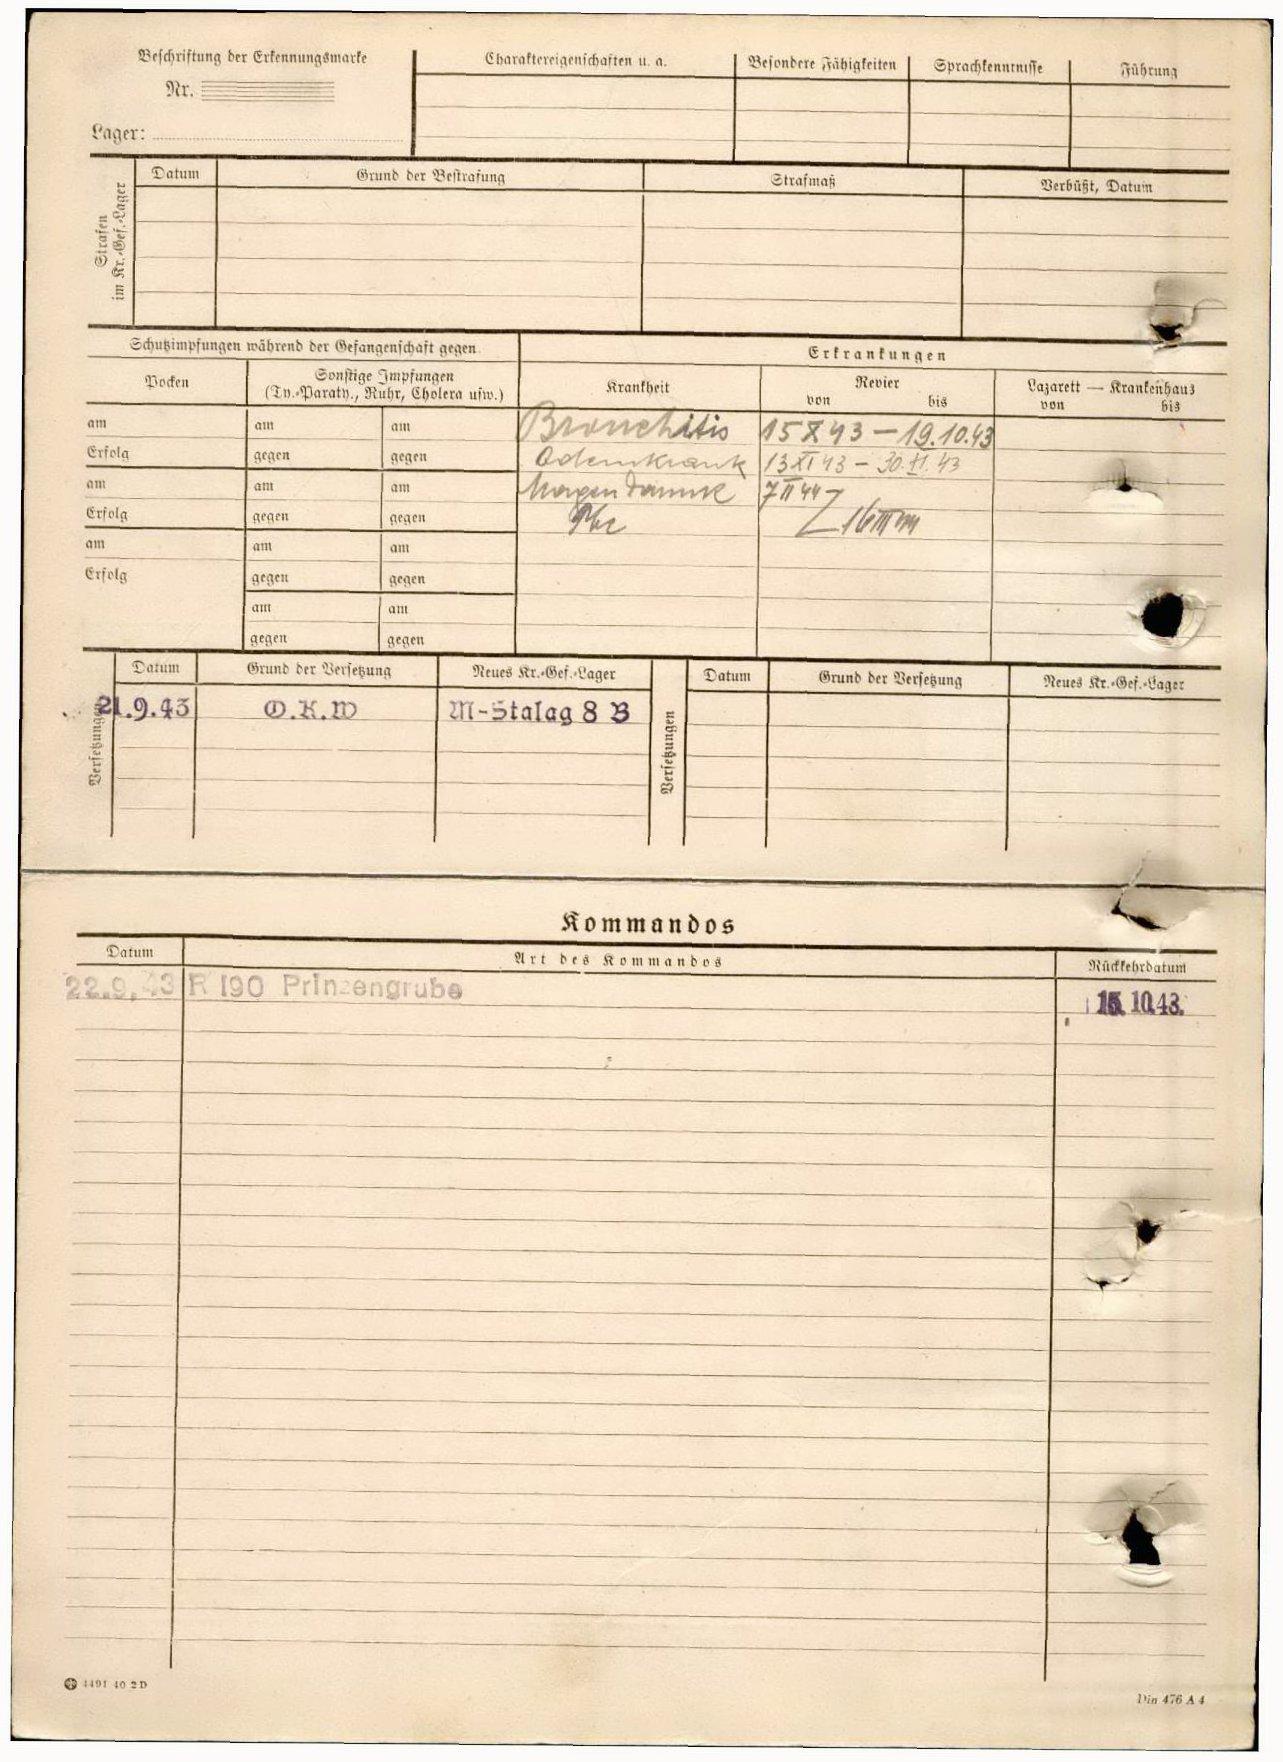 Beschriftung der Erkennungsmarke
Nr.
Lager:
Charaktereigenschaften u. a.
Besondere Fähigkeiten
Sprachkenntnisse
Führung
Strafen
im Kr.-Gef.-Lager
Datum
Grund der Bestrafung
Strafmaß
Verbüßt, Datum
Schutzimpfungen während der Gefangenschaft gegen
Erkrankungen
Pocken
Sonstige Impfungen
(Ty.-Paraty., Ruhr, Cholera usw.)
Krankheit
Revier
von bis
Lazarett — Krankenhaus
von bis
am am am Bronchitis 15 X 43 — 19.10.43
Erfolg gegen gegen Ödemkrank 13 XI 43 — 30.XI.43
am am am 7 II 44
Erfolg gegen gegen 16 III 44
am am am
Erfolg gegen gegen
am am
gegen gegen
Versetzungen
Datum Grund der Versetzung Neues Kr.-Gef.-Lager
21.9.43 O.K.W M-Stalag 8 B
Versetzungen
Datum Grund der Versetzung Neues Kr.-Gef.-Lager
Kommandos
Datum Art des Kommandos Rückkehrdatum
22.9.43 R 190 Prinzengrube 15.10.43.
4491 40 2 D
Din 476 A 4